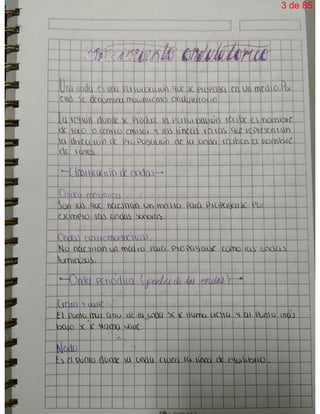 3 de 85
Movimiento ondulatorio
Una onda es una perturbación que se propaga en un medio. Por
eso se denomina movimiento ondulatorio.
La región donde se produce la perturbación recibe el nombre
de foco o centro emisor y las líneas rectas que representan
la dirección de propagación de la onda reciben el nombre
de rayos.
Clasificación de ondas
Ondas mecánicas
Son las que necesitan un medio para propagarse. Por
ejemplo las ondas sonoras.
Ondas electromagnéticas
No necesitan un medio para propagarse como las ondas
luminosas.
Onda periódica (partes de las ondas)
Cresta y valle
El punto más alto de la onda se le llama cresta y al punto más
bajo se le llama valle.
Nodo
Es el punto donde la onda cruza la línea de equilibrio.